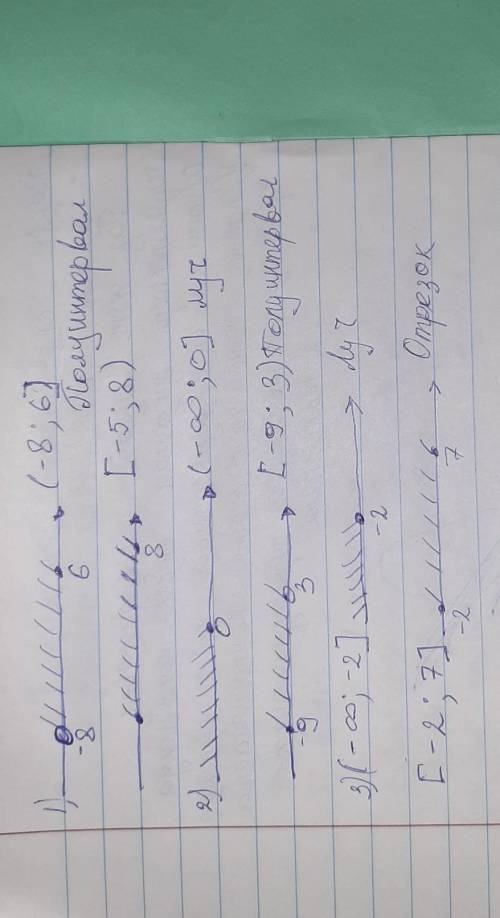 1) -8 6 (-8; 6]
Полуинтервал
8 [-5; 8)
2) 0 (-∞; 0] луч
-9 3 [-9; 3) Полуинтервал
3) (-∞; -2] -2 Луч
[-2; 7] -2 7 Отрезок